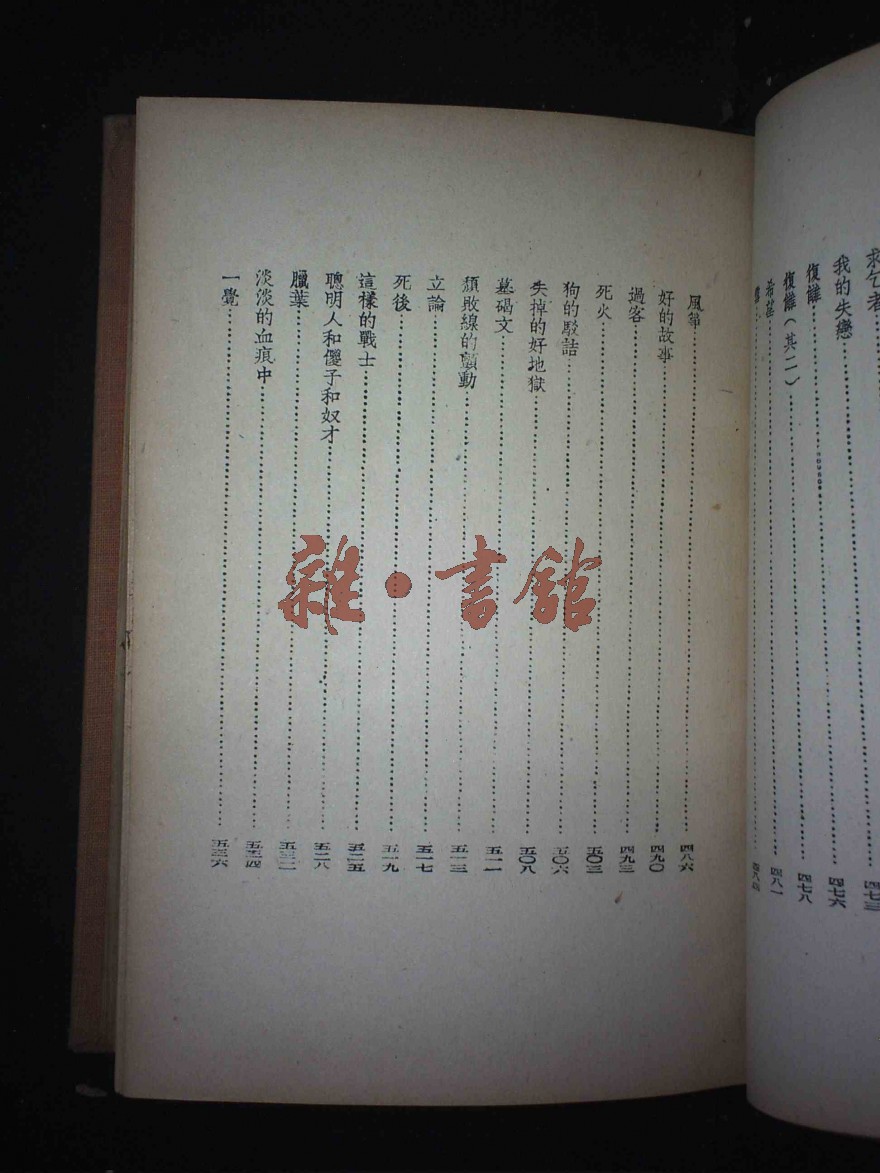 求乞者……四七三
我的失戀……四七六
復讎……四七八
復讎（其二）……四八一
希望
風箏……四八六
好的故事……四九〇
過客……四九三
死火……五〇三
狗的駁詰……五〇六
失掉的好地獄……五〇八
墓碣文……五一一
頹敗線的顫動……五一三
立論……五一七
死後……五一九
這樣的戰士……五二五
聰明人和傻子和奴才……五二八
臘葉……五三二
淡淡的血痕中……五三四
一覺……五三六
雜·書館